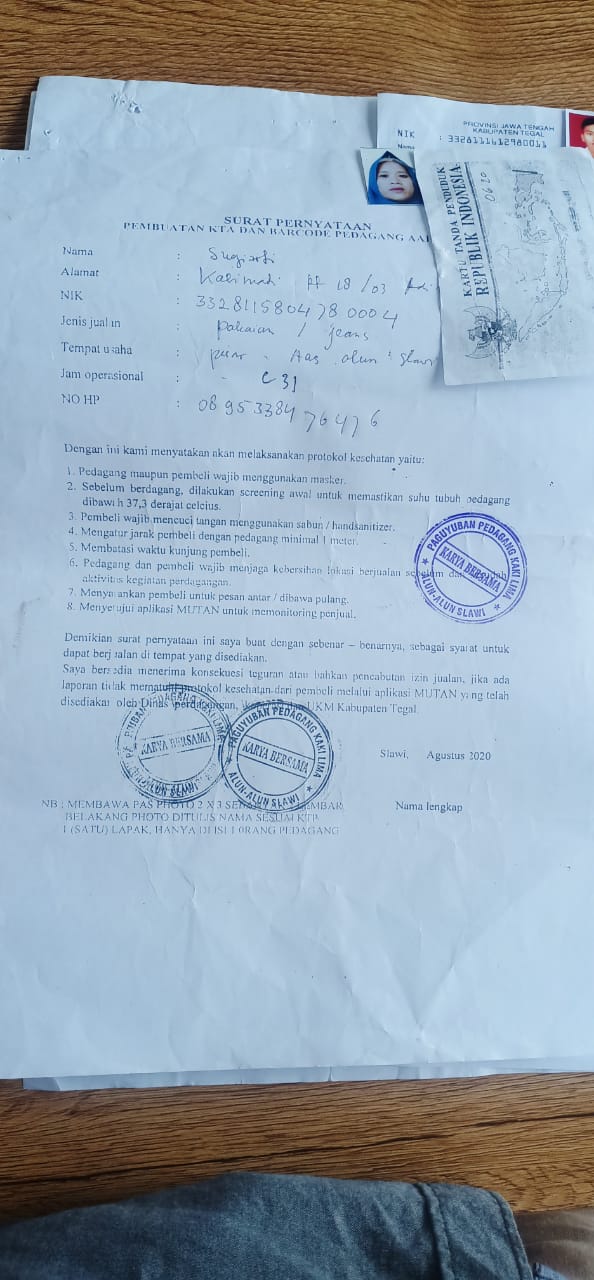 PROVINSI JAWA TENGAH
KABUPATEN TEGAL
NIK : 3328111612980011
Nama
KARTU TANDA PENDUDUK
REPUBLIK INDONESIA
0620
SURAT PERNYATAAN
PEMBUATAN KTA DAN BARCODE PEDAGANG AA
Nama : Sugiarti
Alamat : Kalimati 18/03
NIK : 3328115804780004
Jenis jualan : pakaian / jeans
Tempat usaha : alun Slawi
Jam operasional : - C 31
NO HP : 0895338476476
Dengan ini kami menyatakan akan melaksanakan protokol kesehatan yaitu:
1. Pedagang maupun pembeli wajib menggunakan masker.
2. Sebelum berdagang, dilakukan screening awal untuk memastikan suhu tubuh pedagang
dibawah 37,3 derajat celcius.
3. Pembeli wajib mencuci tangan menggunakan sabun / handsanitizer.
4. Mengatur jarak pembeli dengan pedagang minimal 1 meter.
5. Membatasi waktu kunjung pembeli.
6. Pedagang dan pembeli wajib menjaga kebersihan lokasi berjualan sebelum dan
aktivitas kegiatan perdagangan.
7. Menyarankan pembeli untuk pesan antar / dibawa pulang.
8. Menyetujui aplikasi MUTAN untuk memonitoring penjual.
PAGUYUBAN PEDAGANG KAKI LIMA
KARYA BERSAMA
ALUN-ALUN SLAWI
Demikian surat pernyataan ini saya buat dengan sebenar – benarnya, sebagai syarat untuk
dapat berjualan di tempat yang disediakan.
Saya bersedia menerima konsekuesi teguran atau bahkan pencabutan izin jualan, jika ada
laporan tidak mematuhi protokol kesehatan dari pembeli melalui aplikasi MUTAN yang telah
disediakan oleh Dinas perdagangan, UKM Kabupaten Tegal
PAGUYUBAN PEDAGANG KAKI LIMA
KARYA BERSAMA
ALUN-ALUN SLAWI
PAGUYUBAN PEDAGANG KAKI LIMA
KARYA BERSAMA
ALUN-ALUN SLAWI
Slawi, Agustus 2020
Nama lengkap
NB : MEMBAWA PAS PHOTO 2 X 3
BELAKANG PHOTO DITULIS NAMA SESUAI KTP
1 (SATU) LAPAK, HANYA DI ISI 1 0RANG PEDAGANG